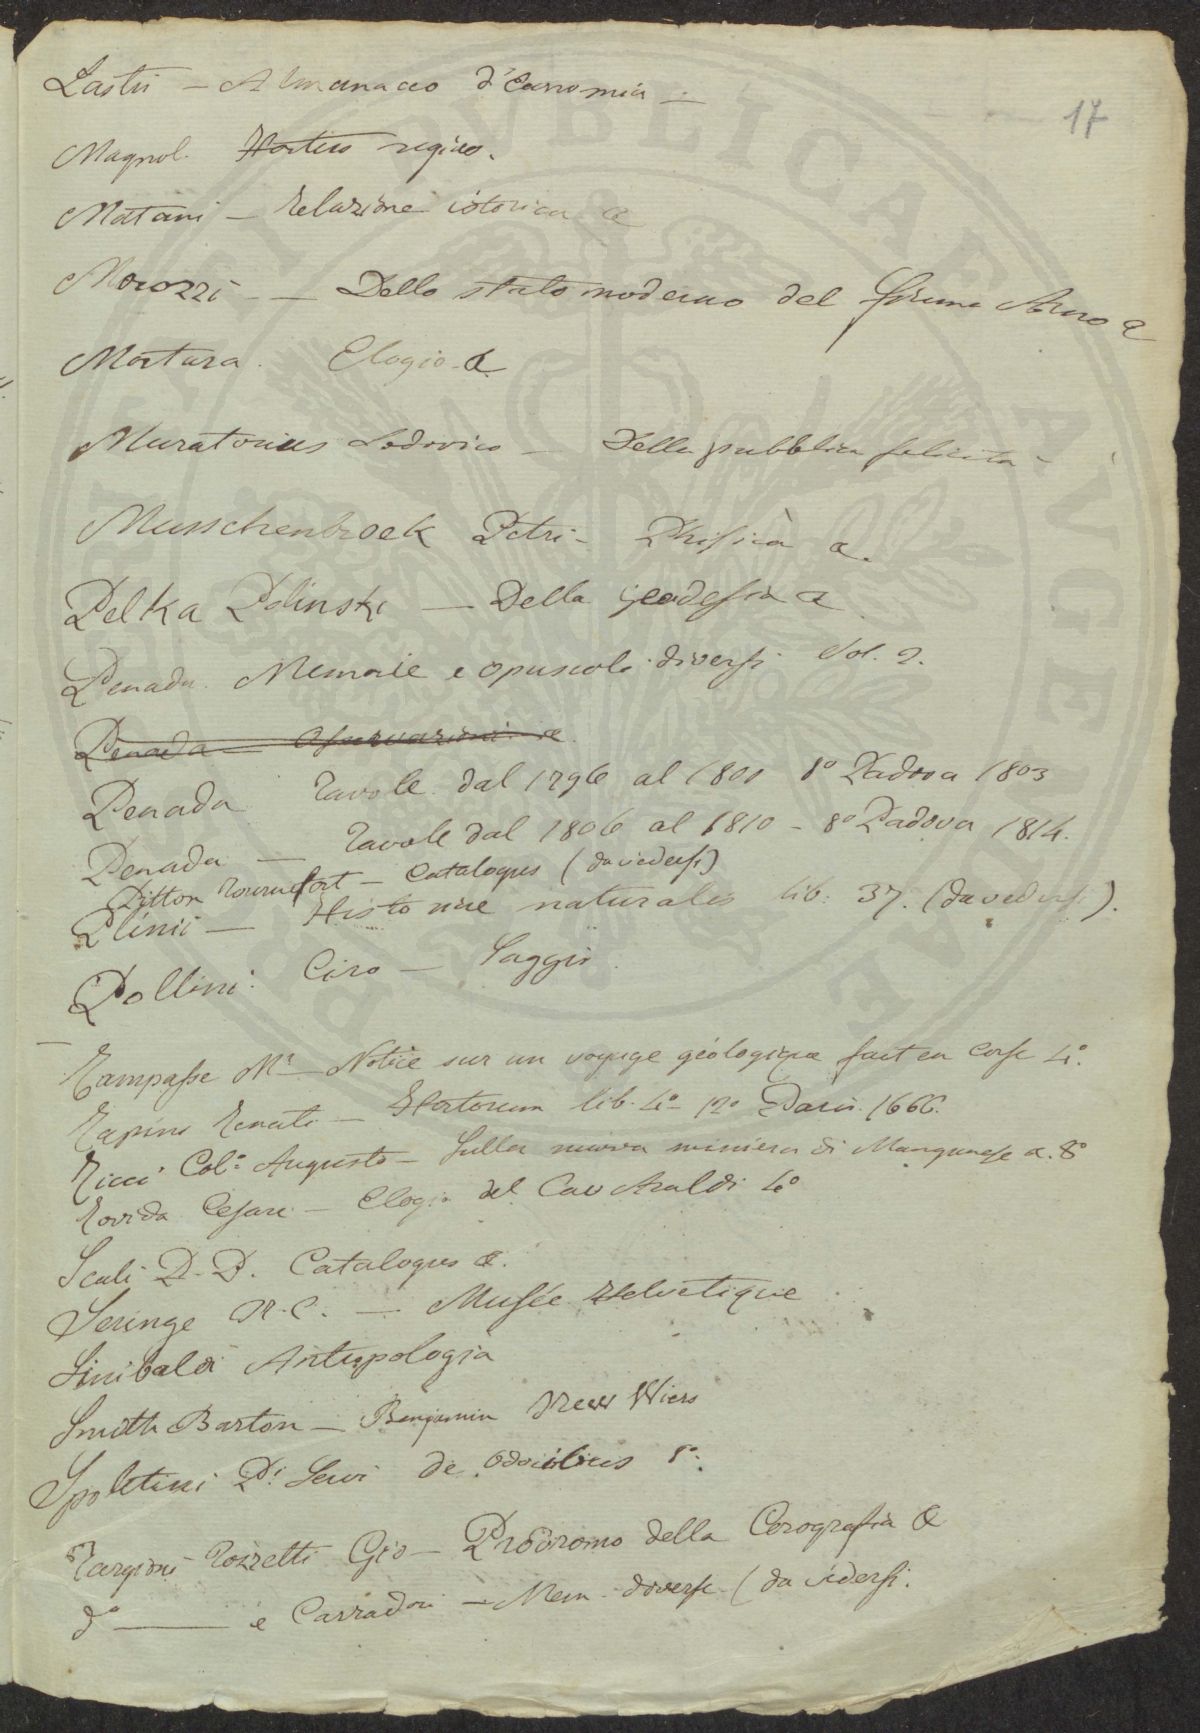 17
Lastri - Almanacco d'Economia -
Magnol. Hortus regius.
Matani - Relazione istorica &
Morozzi - Dello stato moderno del fiume Arno &
Mortara. Elogio &
Muratorius Lodovico - Della pubblica felicità -
Musschenbroek Petri - Phisicà &.
Pelka Polinski - Della geodesia &
Penada. Memorie e opuscoli diversi Vol. 2.
Penada - Osservazioni &
Penada Tavole dal 1796 al 1801 8º Padova 1803
Penada - Tavole dal 1806 al 1810 - 8º Padova 1814.
Pitton Tournefort - Catalogus (da vedersi)
Plinii - Historiae naturales lib: 37. (da vedersi).
Pollini: Ciro - Saggio
Rampasse Mr - Notice sur un voyage géologique fait en Corse 4º.
Rapini Renati - Hortorum lib. 4º 12º Paris. 1666.
Ricci Colº Augusto - Sulla nuova miniera di Manganese &. 8º
Rovida Cesare - Elogio del Cav Araldi 4º
Scali P. P. Catalogus &.
Seringe N. C. - Musée Helvetique
Sinibaldi Antropologia
Smith Barton - Benjamin New Wiers
Spoletini Di Servi de 8º.
Targioni Tozzetti Gio - Prodromo della Corografia &
dº e Carradori - Mem. diverse (da vedersi.